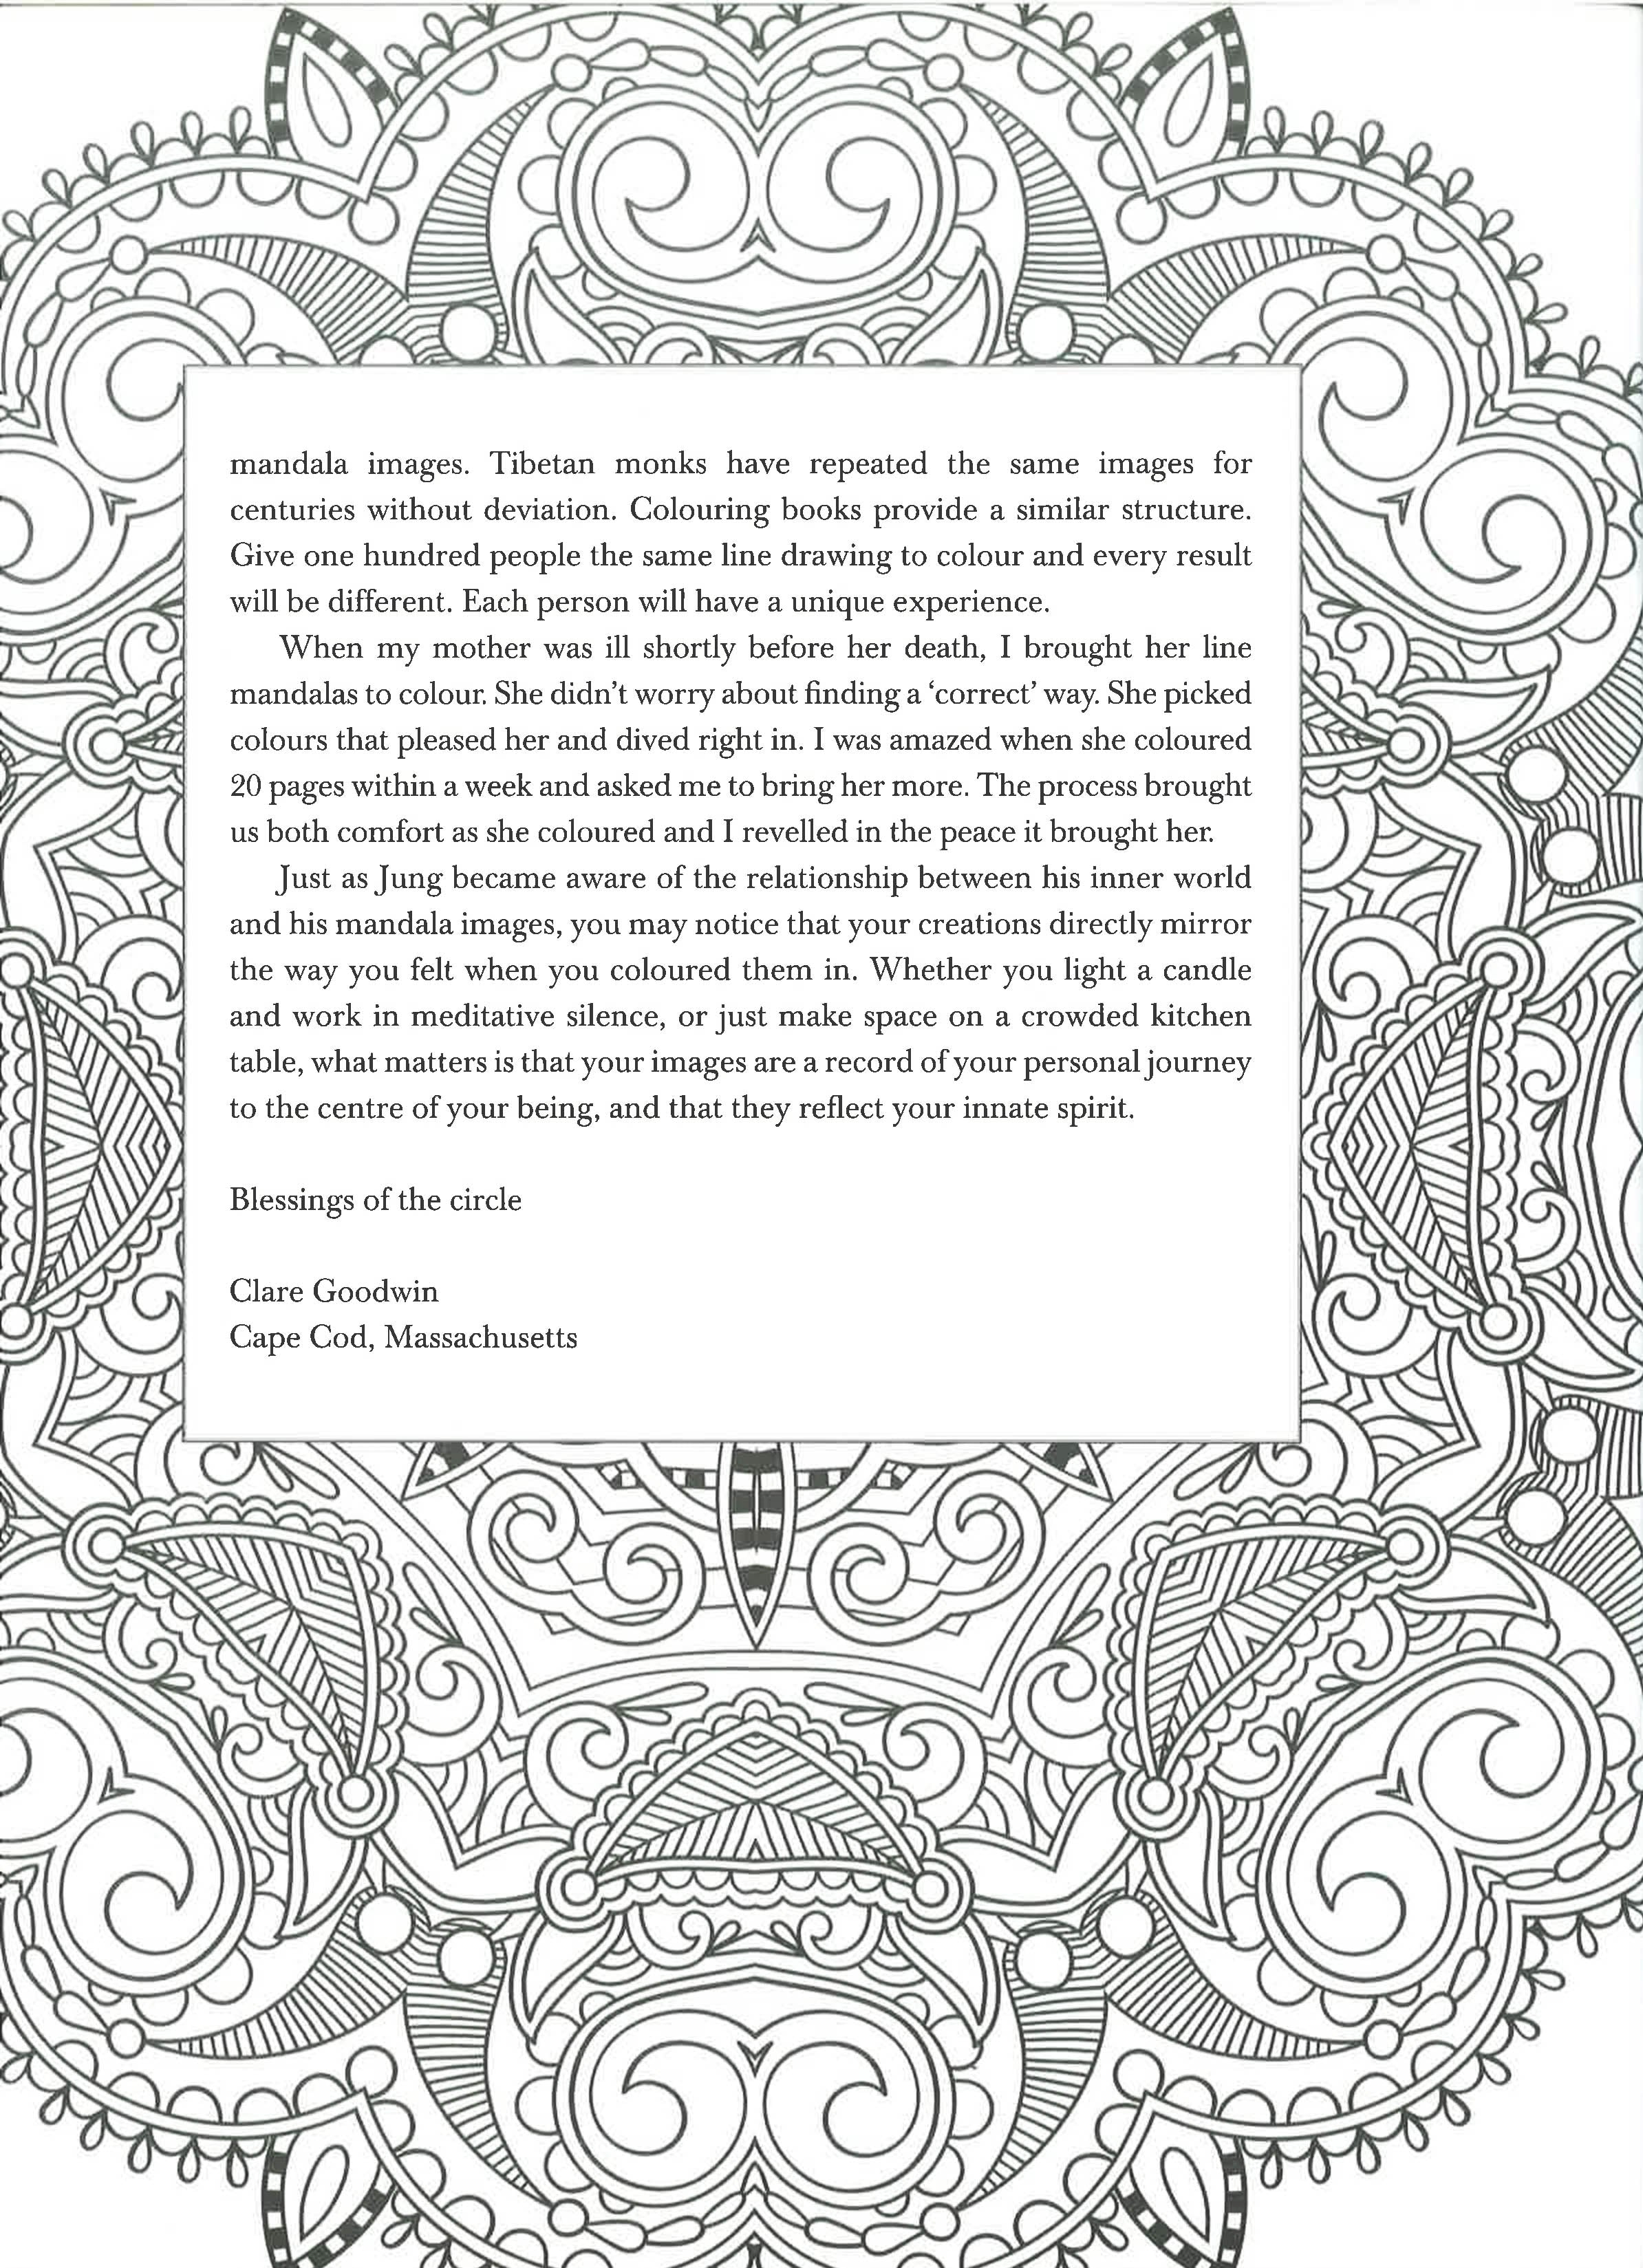 mandala images. Tibetan monks have repeated the same images for
centuries without deviation. Colouring books provide a similar structure.
Give one hundred people the same line drawing to colour and every result
will be different. Each person will have a unique experience.
When my mother was ill shortly before her death, I brought her line
mandalas to colour. She didn’t worry about finding a ‘correct’ way. She picked
colours that pleased her and dived right in. I was amazed when she coloured
20 pages within a week and asked me to bring her more. The process brought
us both comfort as she coloured and I revelled in the peace it brought her.
Just as Jung became aware of the relationship between his inner world
and his mandala images, you may notice that your creations directly mirror
the way you felt when you coloured them in. Whether you light a candle
and work in meditative silence, or just make space on a crowded kitchen
table, what matters is that your images are a record of your personal journey
to the centre of your being, and that they reflect your innate spirit.
Blessings of the circle
Clare Goodwin
Cape Cod, Massachusetts